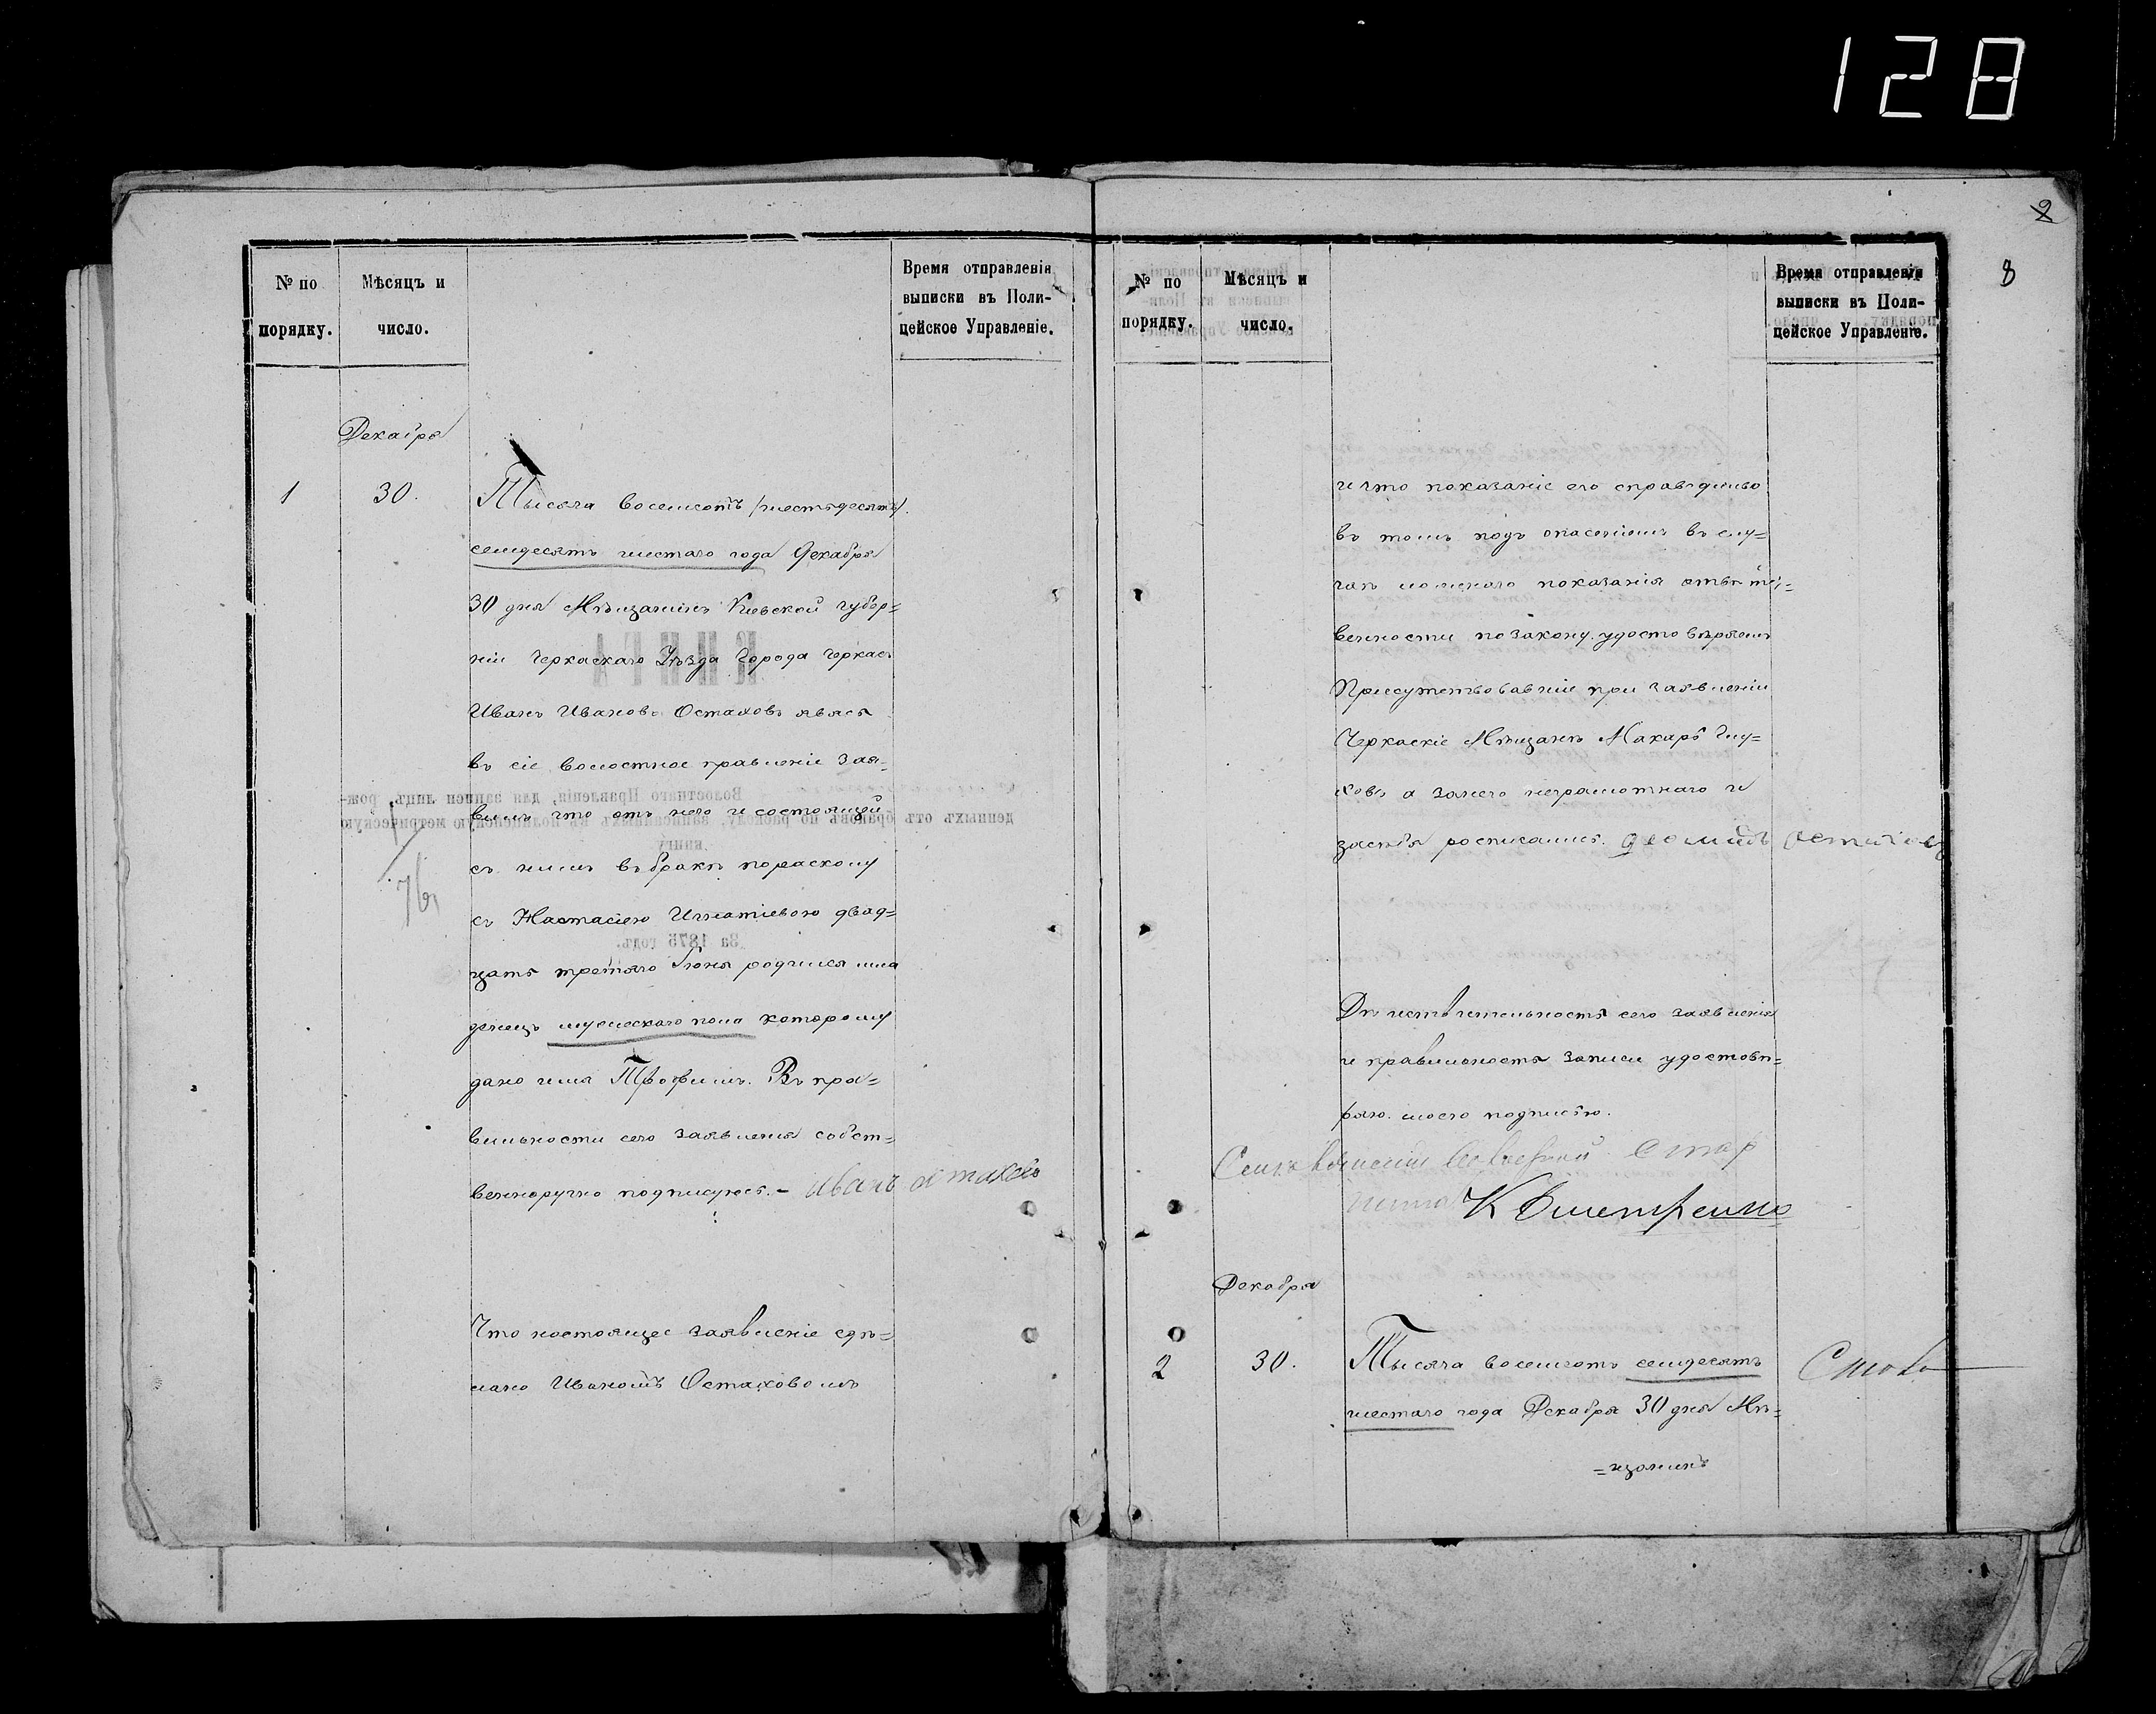 128
2
8
№ по порядку.
Мѣсяцъ и число.
Время отправленія
выписки въ Поли-
цейское Управленіе.
Декабря
1 30. Тысяча восемсотъ /шестьдесятъ/.
семдесятъ шестаго года Декабря
30 дня Мѣщанинъ Кіевской губер=
ніи Черкаскаго Уѣзда города Черкасъ
Иванъ Ивановъ Остаховъ явясь
въ сіе волостное правленіе Зая=
вилъ что отъ него и состоящей
съ нимъ въ бракѣ пораскому
съ Настасіею Игнатіевою двад=
цать третяго Іюня родился мла
денецъ мужескаго пола которому
дано имя Трофимъ. Въ пра=
вильности сего заявленія собст=
венноручно подписуюсь. - Иванъ Остаховъ
Что настоящее заявленіе сдѣ=
лано Иваномъ Остаховомъ
№ по порядку.
Мѣсяцъ и число.
Время отправленія
выписки въ Поли-
цейское Управленіе.
и что показаніе его справедливо
въ томъ подъ опасеніемъ въ слу=
чаѣ ложнаго показанія отвѣтст=
венности по закону удостовѣряемъ
Присутствовавшіе при заявленіи
Черкаскіе Мѣщане Макаръ Глу=
ховъ а занего неграмотнаго и
засебя росписался. Деомидъ Остаховъ
Дѣйствительность сего заявленія
и правильность записи удостовѣ=
ряю моею подписью.
Волостной Стар
шина К Дмитренко
Декабря
2 30. Тысяча восемсотъ семдесятъ
шестаго года Декабря 30 дня Мѣ=
=щанинъ